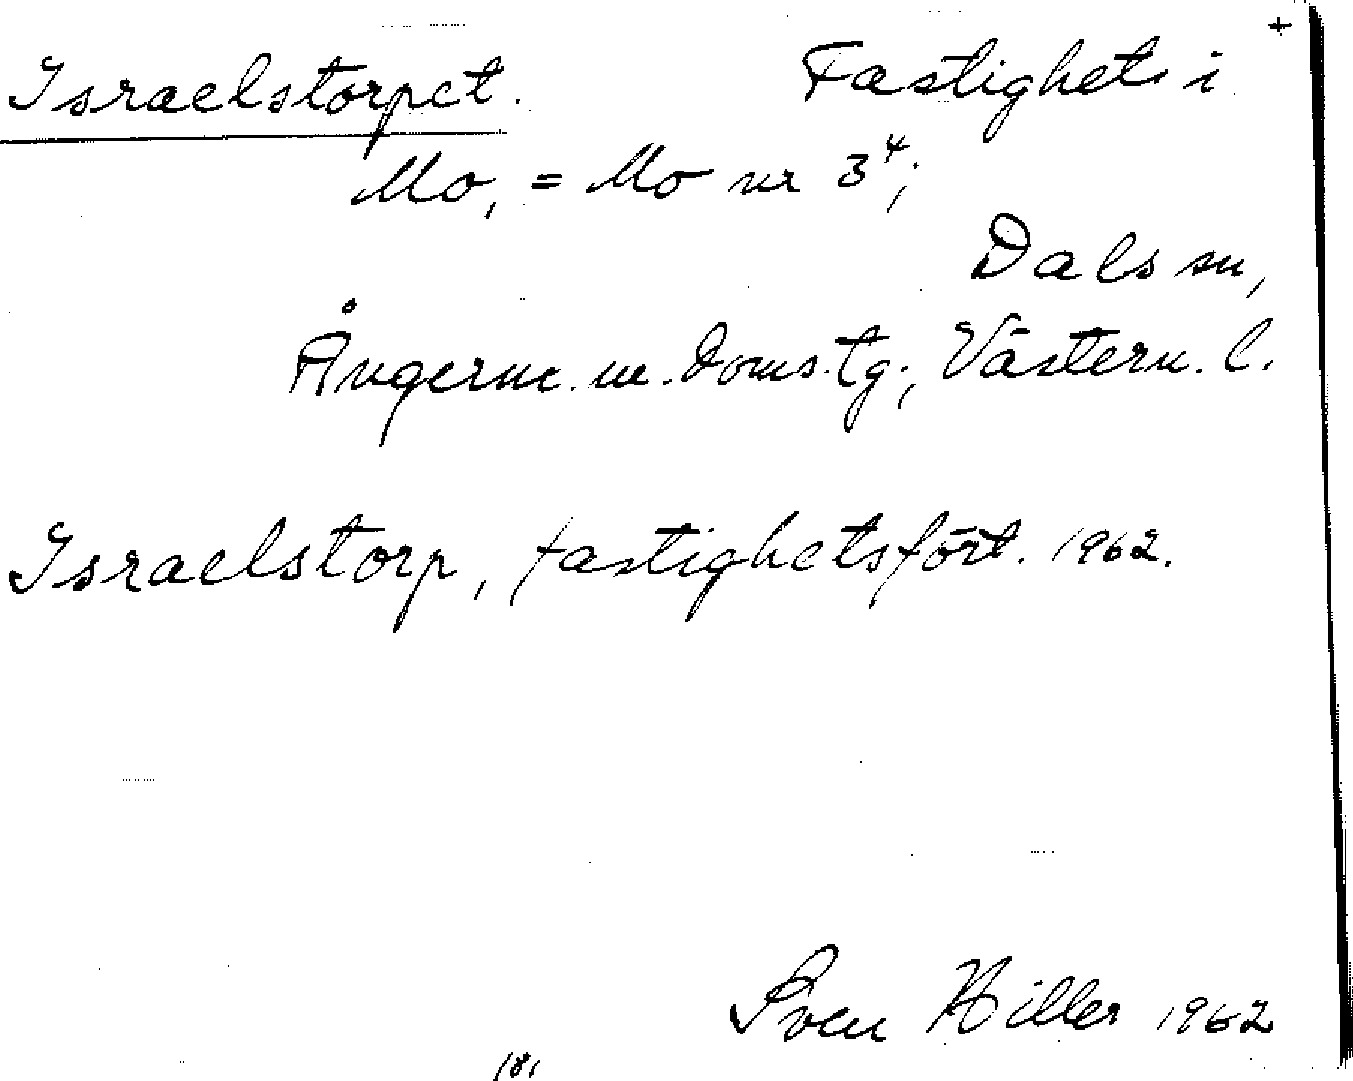 +
Israelstorpet. Fastighet i
Mo, = Mo nr 3⁴;
Dals sn,
Ångerm. m. doms. tg., Västern. l.
Israelstorp, fastighetsfört. 1962.
Sven Hiller 1962
181